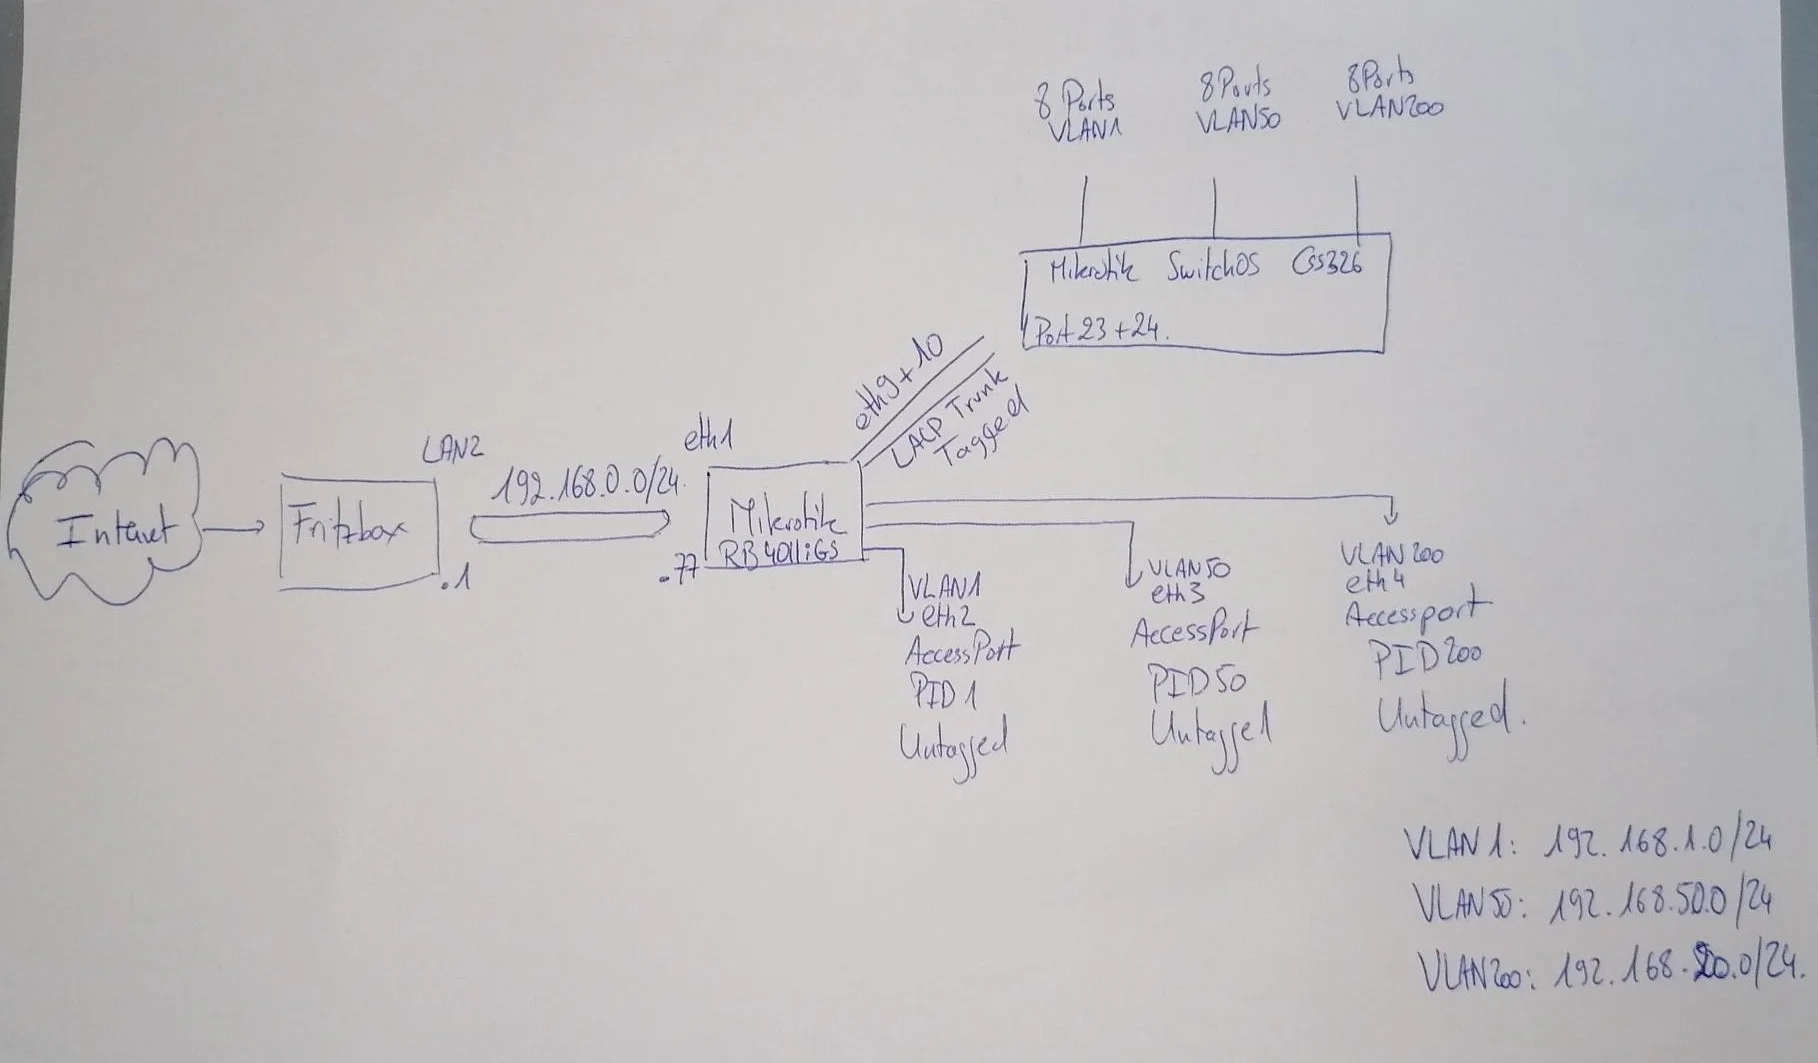 8 Ports
VLAN1
8 Ports
VLAN50
8 Ports
VLAN200
Mikrotik SwitchOS CSS326
Port 23 + 24.
eth9 + 10
LACP Trunk
Tagged
Internet
Fritzbox
LAN2
.1
192.168.0.0/24.
eth1
.77
Mikrotik
RB4011iGS
VLAN1
eth2
AccessPort
PID 1
Untagged
VLAN50
eth3
AccessPort
PID 50
Untagged
VLAN200
eth4
Accessport
PID 200
Untagged.
VLAN 1: 192.168.1.0/24
VLAN50: 192.168.50.0/24
VLAN200: 192.168. .0/24.